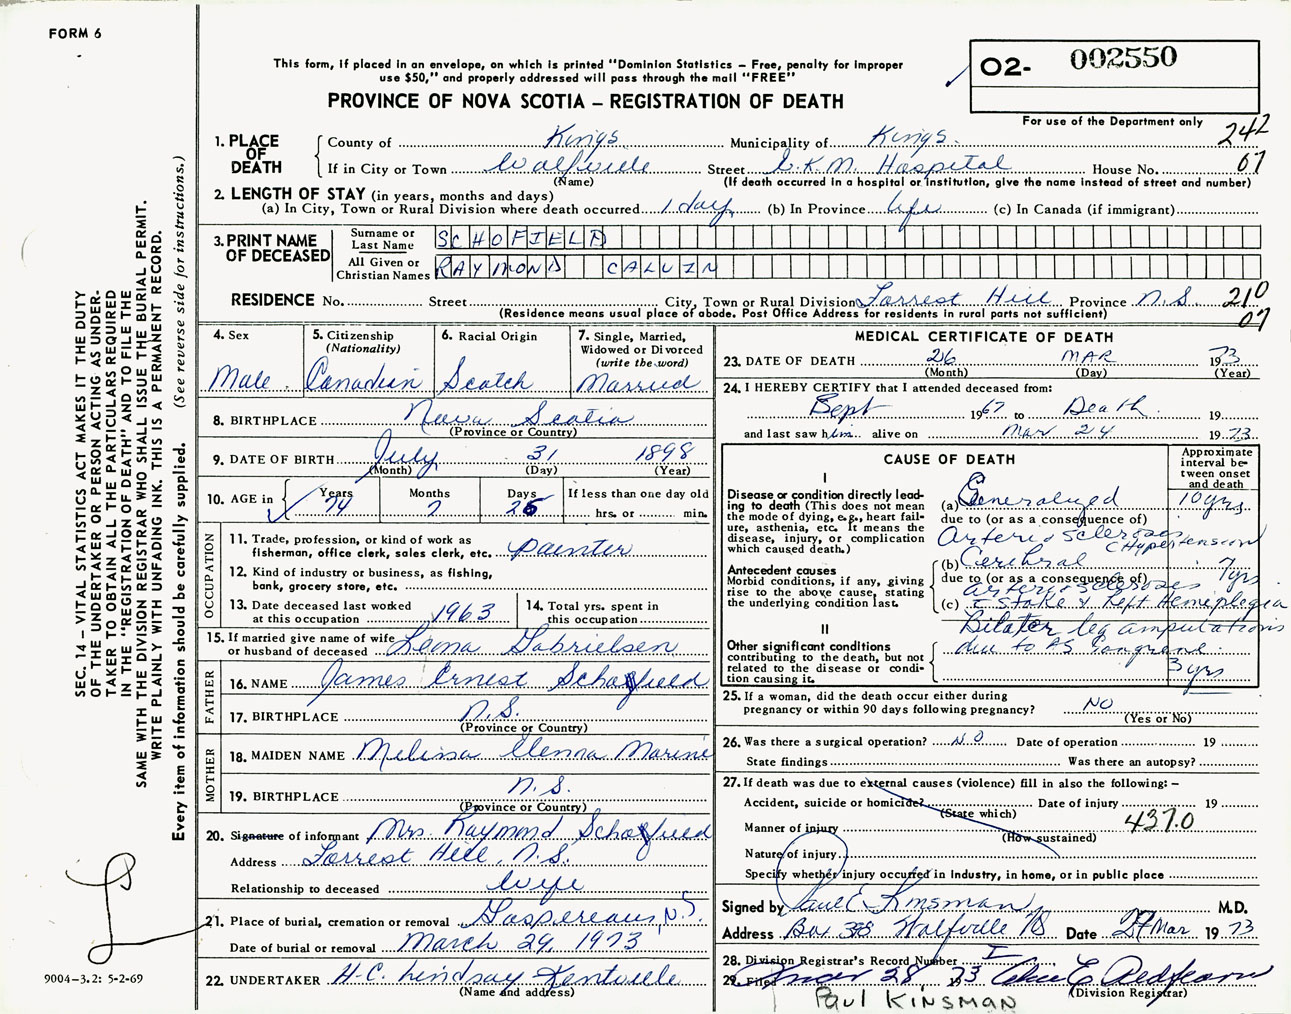 FORM 6
This form, if placed in an envelope, on which is printed "Dominion Statistics – Free, penalty for improper
use $50," and properly addressed will pass through the mail "FREE"
PROVINCE OF NOVA SCOTIA – REGISTRATION OF DEATH
O2- 002550
For use of the Department only
242
07
1. PLACE OF DEATH
County of Kings Municipality of Kings
If in City or Town Wolfville Street E.K.M. Hospital House No.
(Name) (If death occurred in a hospital or institution, give the name instead of street and number)
2. LENGTH OF STAY (in years, months and days)
(a) In City, Town or Rural Division where death occurred 1 day (b) In Province life (c) In Canada (if immigrant)
3. PRINT NAME OF DECEASED
Surname or Last Name SCHOFIELD
All Given or Christian Names RAYMOND CALVIN
RESIDENCE No. Street City, Town or Rural Division Forrest Hill Province N.S.
210
07
(Residence means usual place of abode. Post Office Address for residents in rural parts not sufficient)
4. Sex
Male
5. Citizenship
(Nationality)
Canadian
6. Racial Origin
Scotch
7. Single, Married,
Widowed or Divorced
(write the word)
Married
8. BIRTHPLACE Nova Scotia
(Province or Country)
9. DATE OF BIRTH July 31 1898
(Month) (Day) (Year)
10. AGE in
Years Months Days If less than one day old
74 7 25 hrs. or min.
OCCUPATION
11. Trade, profession, or kind of work as
fisherman, office clerk, sales clerk, etc. Painter
12. Kind of industry or business, as fishing,
bank, grocery store, etc.
13. Date deceased last worked
at this occupation 1963
14. Total yrs. spent in
this occupation
15. If married give name of wife
or husband of deceased Leona Gabrielsen
FATHER
16. NAME James Ernest Schofield
17. BIRTHPLACE N.S.
(Province or Country)
MOTHER
18. MAIDEN NAME Melissa
19. BIRTHPLACE N.S.
(Province or Country)
20. Signature of informant Mrs Raymond Schofield
Address Forrest Hill, N.S.
Relationship to deceased Wife
21. Place of burial, cremation or removal Gaspereau, N.S.
Date of burial or removal March 29, 1973
22. UNDERTAKER H.C. Lindsay Kentville
(Name and address)
MEDICAL CERTIFICATE OF DEATH
23. DATE OF DEATH 26 MAR 1973
(Month) (Day) (Year)
24. I HEREBY CERTIFY that I attended deceased from:
Sept 1967 to Death 19
and last saw him alive on Mar 24 1973
CAUSE OF DEATH
Approximate
interval be-
tween onset
and death
I
Disease or condition directly lead-
ing to death (This does not mean
the mode of dying, e.g., heart fail-
ure, asthenia, etc. It means the
disease, injury, or complication
which caused death.)
(a) Generalized 10 yrs
due to (or as a consequence of)
Arteriosclerosis
C Hypertension
Antecedent causes
Morbid conditions, if any, giving
rise to the above cause, stating
the underlying condition last.
(b) Cerebral 7 yrs
due to (or as a consequence of)
arteriosclerosis
(c) c̄ stoke & Left Hemiplegia
II
Other significant conditions
contributing to the death, but not
related to the disease or condi-
tion causing it.
Bilater leg amputations
due to AS Gangrene
3 yrs
25. If a woman, did the death occur either during
pregnancy or within 90 days following pregnancy? NO
(Yes or No)
26. Was there a surgical operation? NO Date of operation 19
State findings Was there an autopsy?
27. If death was due to external causes (violence) fill in also the following:–
Accident, suicide or homicide? Date of injury 19
(State which)
Manner of injury 437.0
(How sustained)
Nature of injury
Specify whether injury occurred in industry, in home, or in public place
Signed by Paul E Kinsman M.D.
Address Box 398 Wolfville NS Date 27 Mar 1973
28. Division Registrar's Record Number I
29. Filed Mar 28 1973
(Division Registrar)
PAUL KINSMAN
SEC. 14 – VITAL STATISTICS ACT MAKES IT THE DUTY
OF THE UNDERTAKER OR PERSON ACTING AS UNDER-
TAKER TO OBTAIN ALL THE PARTICULARS REQUIRED
IN THE "REGISTRATION OF DEATH" AND TO FILE THE
SAME WITH THE DIVISION REGISTRAR WHO SHALL ISSUE THE BURIAL PERMIT.
WRITE PLAINLY WITH UNFADING INK. THIS IS A PERMANENT RECORD.
Every item of information should be carefully supplied. (See reverse side for instructions.)
9004-3.2: 5-2-69